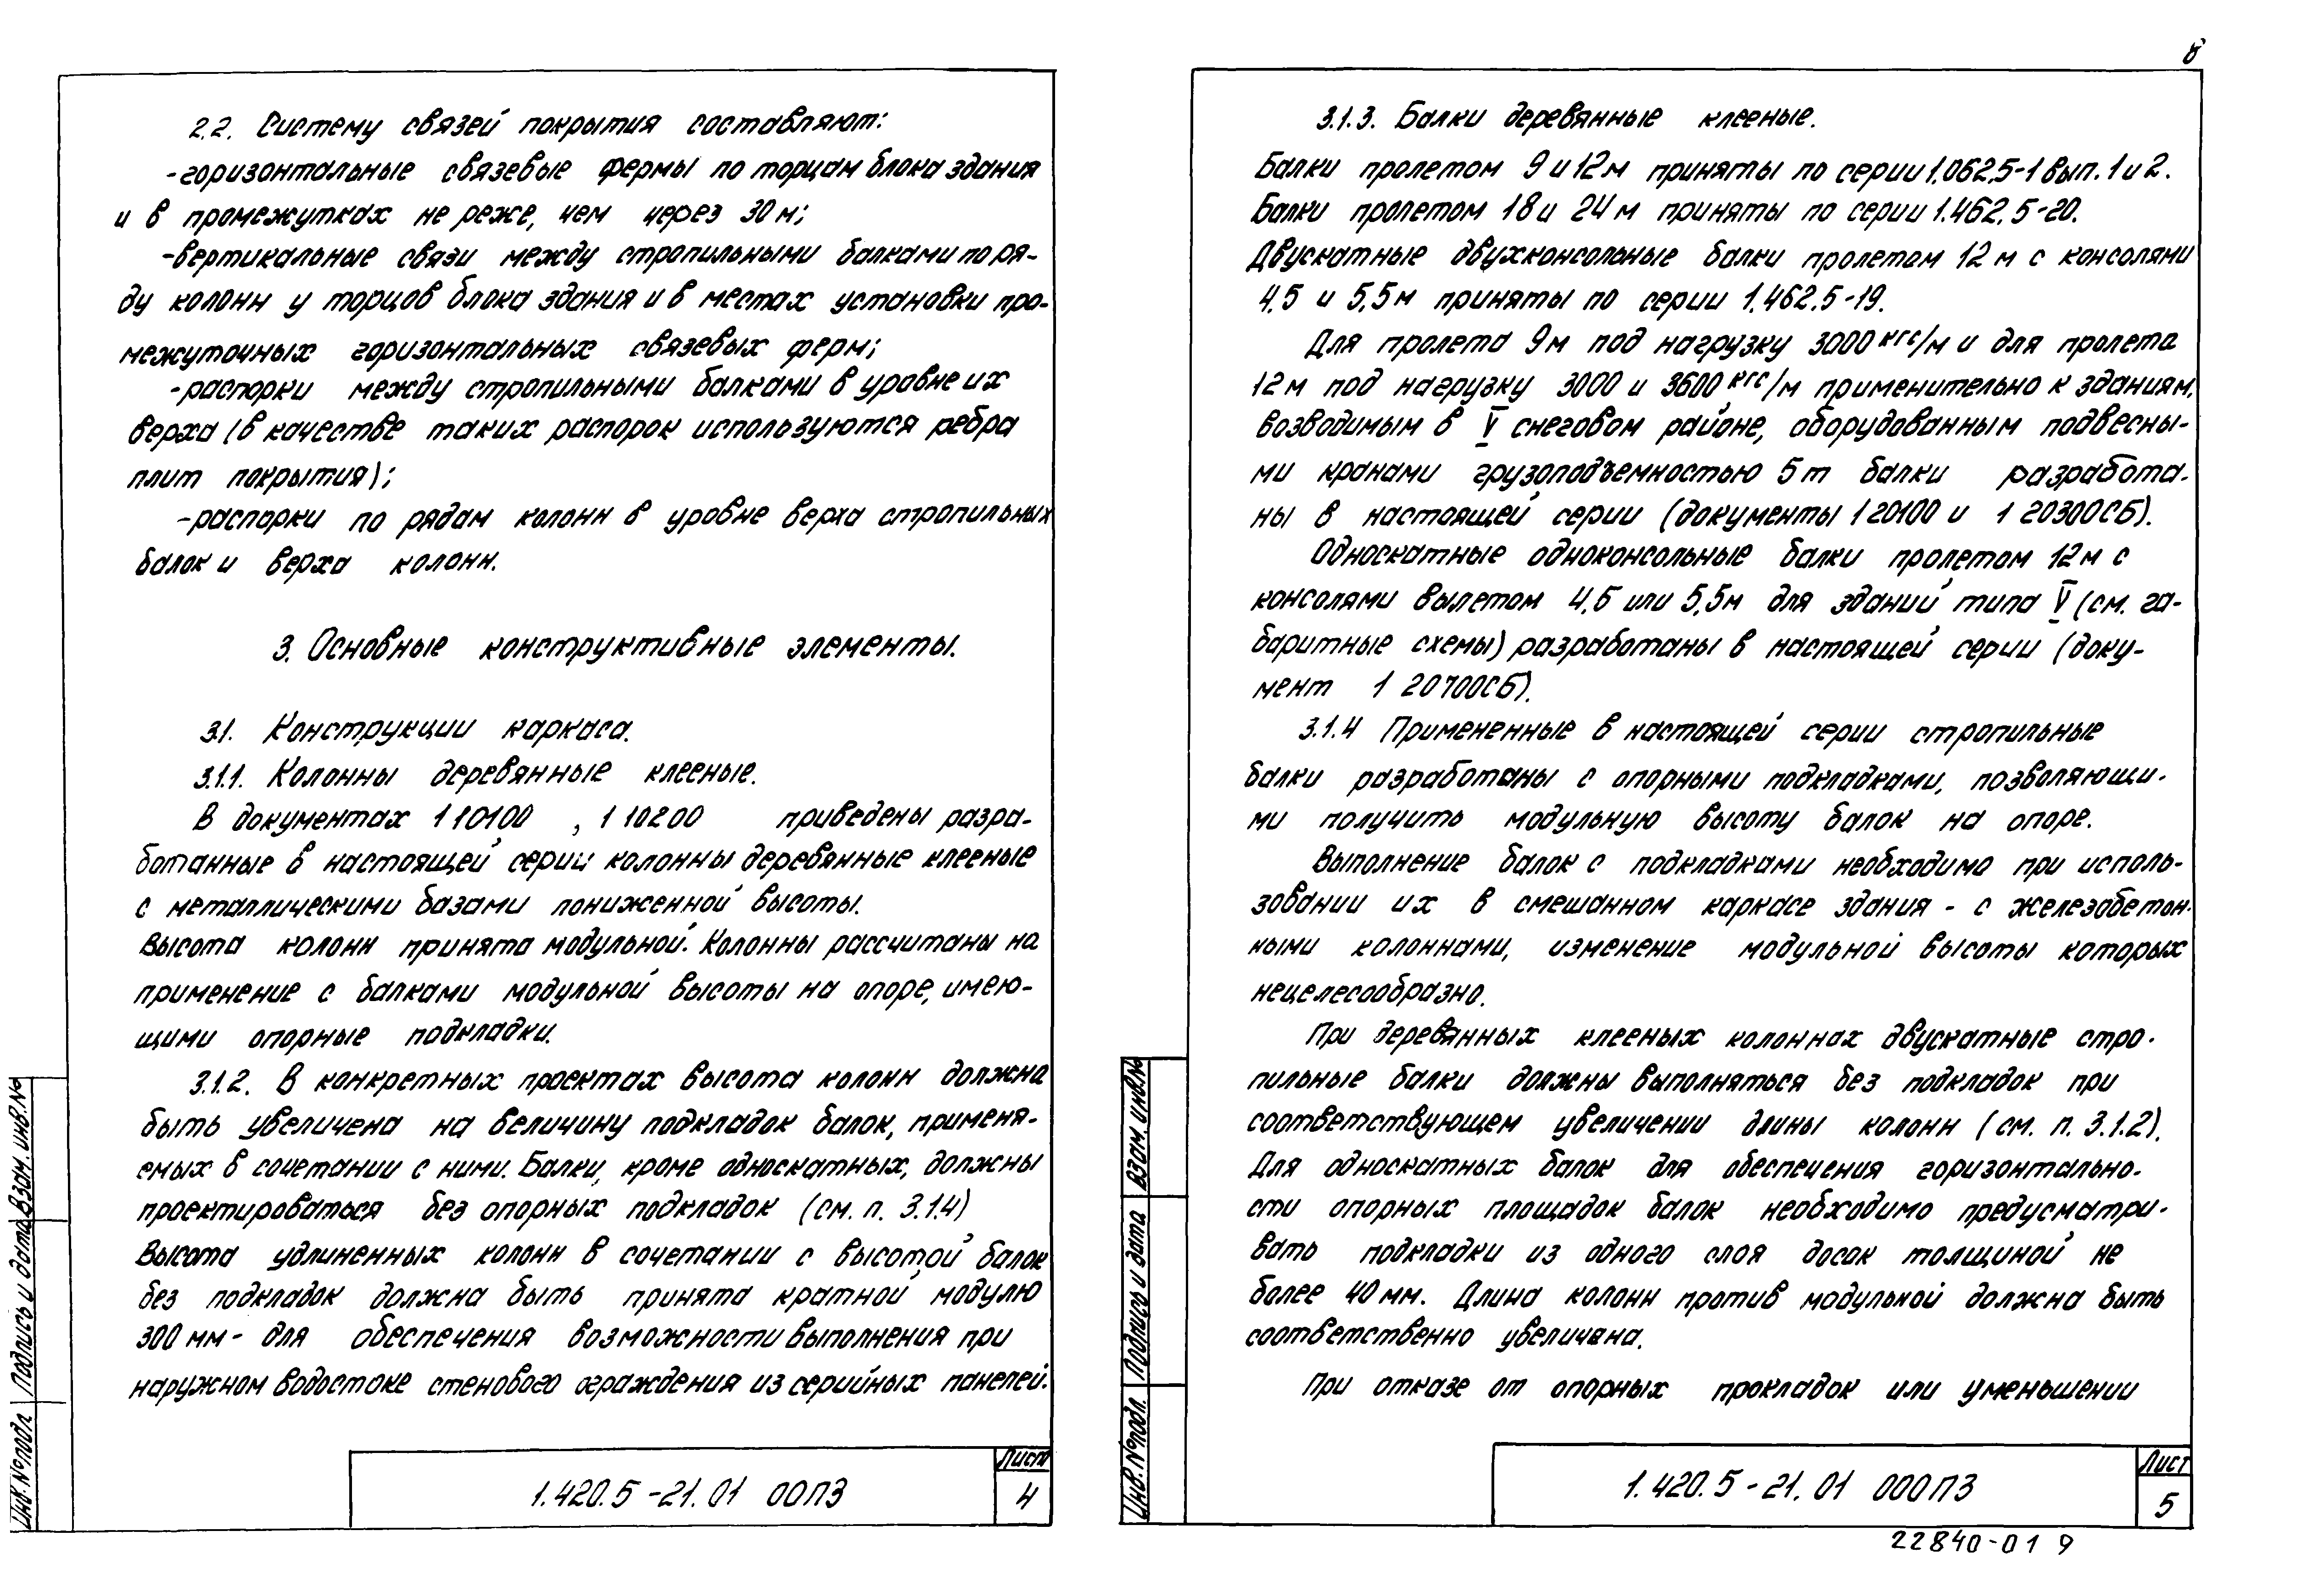 2.2. Систему связей покрытия составляют:
-горизонтальные связевые фермы по торцам блока здания
и в промежутках не реже, чем через 30 м;
-вертикальные связи между стропильными балками по ря-
ду колонн у торцов блока здания и в местах установки про-
межуточных горизонтальных связевых ферм;
-распорки между стропильными балками в уровне их
верха (в качестве таких распорок используются ребра
плит покрытия);
-распорки по рядам колонн в уровне верха стропильных
балок и верха колонн.
3. Основные конструктивные элементы.
3.1. Конструкции каркаса.
3.1.1. Колонны деревянные клееные.
В документах 1 10100 , 1 10200 приведены разра-
ботанные в настоящей серии колонны деревянные клееные
с металлическими базами пониженной высоты.
Высота колонн принята модульной. Колонны рассчитаны на
применение с балками модульной высоты на опоре, имею-
щими опорные подкладки.
3.1.2. В конкретных проектах высота колонн должна
быть увеличена на величину подкладок балок, применя-
емых в сочетании с ними. Балки, кроме односкатных, должны
проектироваться без опорных подкладок (см. п. 3.1.4)
Высота удлиненных колонн в сочетании с высотой балок
без подкладок должна быть принята кратной модулю
300 мм - для обеспечения возможности выполнения при
наружном водостоке стенового ограждения из серийных панелей.
Инв. № подл. Подпись и дата Взам. инв. №
1.420.5-21.01 00ПЗ
Лист
4
8
3.1.3. Балки деревянные клееные.
Балки пролетом 9 и 12 м приняты по серии 1.062.5-1 вып. 1 и 2.
Балки пролетом 18 и 24 м приняты по серии 1.462.5-20.
Двускатные двухконсольные балки пролетом 12 м с консолями
4,5 и 5,5 м приняты по серии 1.462.5-19.
Для пролета 9 м под нагрузку 3000 кгс/м и для пролета
12 м под нагрузку 3000 и 3600 кгс/м применительно к зданиям,
возводимым в V снеговом районе, оборудованным подвесны-
ми кранами грузоподъемностью 5 т балки разработа-
ны в настоящей серии (документы 1 20100 и 1 20300СБ).
Односкатные одноконсольные балки пролетом 12 м с
консолями вылетом 4,5 или 5,5 м для зданий типа V (см. га-
баритные схемы) разработаны в настоящей серии (доку-
мент 1 20700СБ).
3.1.4 Примененные в настоящей серии стропильные
балки разработаны с опорными подкладками, позволяющи-
ми получить модульную высоту балок на опоре.
Выполнение балок с подкладками необходимо при исполь-
зовании их в смешанном каркасе здания - с железобетон-
ными колоннами, изменение модульной высоты которых
нецелесообразно.
При деревянных клееных колоннах двускатные стро-
пильные балки должны выполняться без подкладок при
соответствующем увеличении длины колонн (см. п. 3.1.2).
Для односкатных балок для обеспечения горизонтально-
сти опорных площадок балок необходимо предусматри-
вать подкладки из одного слоя досок толщиной не
более 40 мм. Длина колонн против модульной должна быть
соответственно увеличена.
При отказе от опорных прокладок или уменьшении
Инв. № подл. Подпись и дата Взам. инв. №
1.420.5-21.01 000ПЗ
Лист
5
22840-01 9